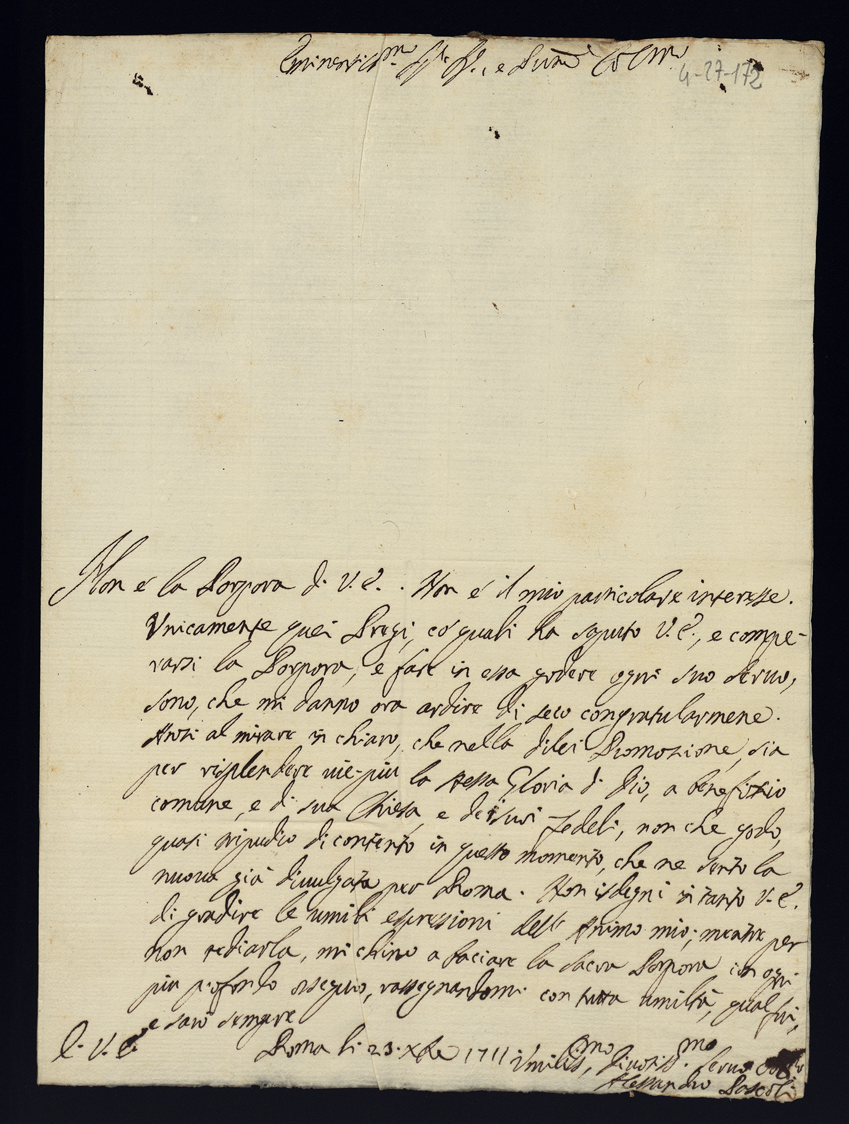 Eminentiss.mo Sig.re Sig.re e Pron. Col.mo
4-27-172
Non é la Porpora di V. E. . Non é il mio particolare interesse.
Vnicamente quei Pregi, có quali ha saputo V. E., e compe-
rarsi la Porpora, e fare in essa godere ogni suo seruo,
sono, che mi danno ora ardire di seco congratularmene.
Anzi al mirare in chiaro, che nella di lei Promozione, sia
per risplendere uie-piu la stessa Gloria di Dio, a benefizio
comune, e di sua Chiesa, e de suoi Fedeli, non che godo,
quasi tripudio di contento in questo momento, che ne sento la
nuoua già diuulgata per Roma. Non isdegni in tanto V. E.
di gradire le umili espressioni dell' Animo mio; mentre per
non tediarla, mi chino a baciare la sacra Porpora con ogni
piu profondo ossequio, rassegnandomi con tutta umiltà, qual fui,
e sarò sempre
D. V. E.
Roma li 23. Xbre 1711
Vmiliss.mo, Diuotiss.mo Seruo
Alessandro Pascoli